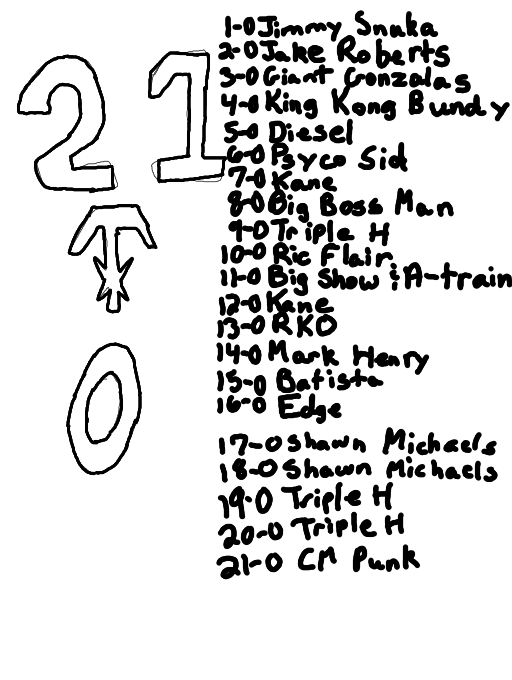 21
0
1-0 Jimmy Snuka
2-0 Jake Roberts
3-0 Giant Gonzalas
4-0 King Kong Bundy
5-0 Diesel
6-0 Psyco Sid
7-0 Kane
8-0 Big Boss Man
9-0 Triple H
10-0 Ric Flair
11-0 Big Show & A-train
12-0 Kane
13-0 RKO
14-0 Mark Henry
15-0 Batista
16-0 Edge
17-0 Shawn Michaels
18-0 Shawn Michaels
19-0 Triple H
20-0 Triple H
21-0 CM Punk